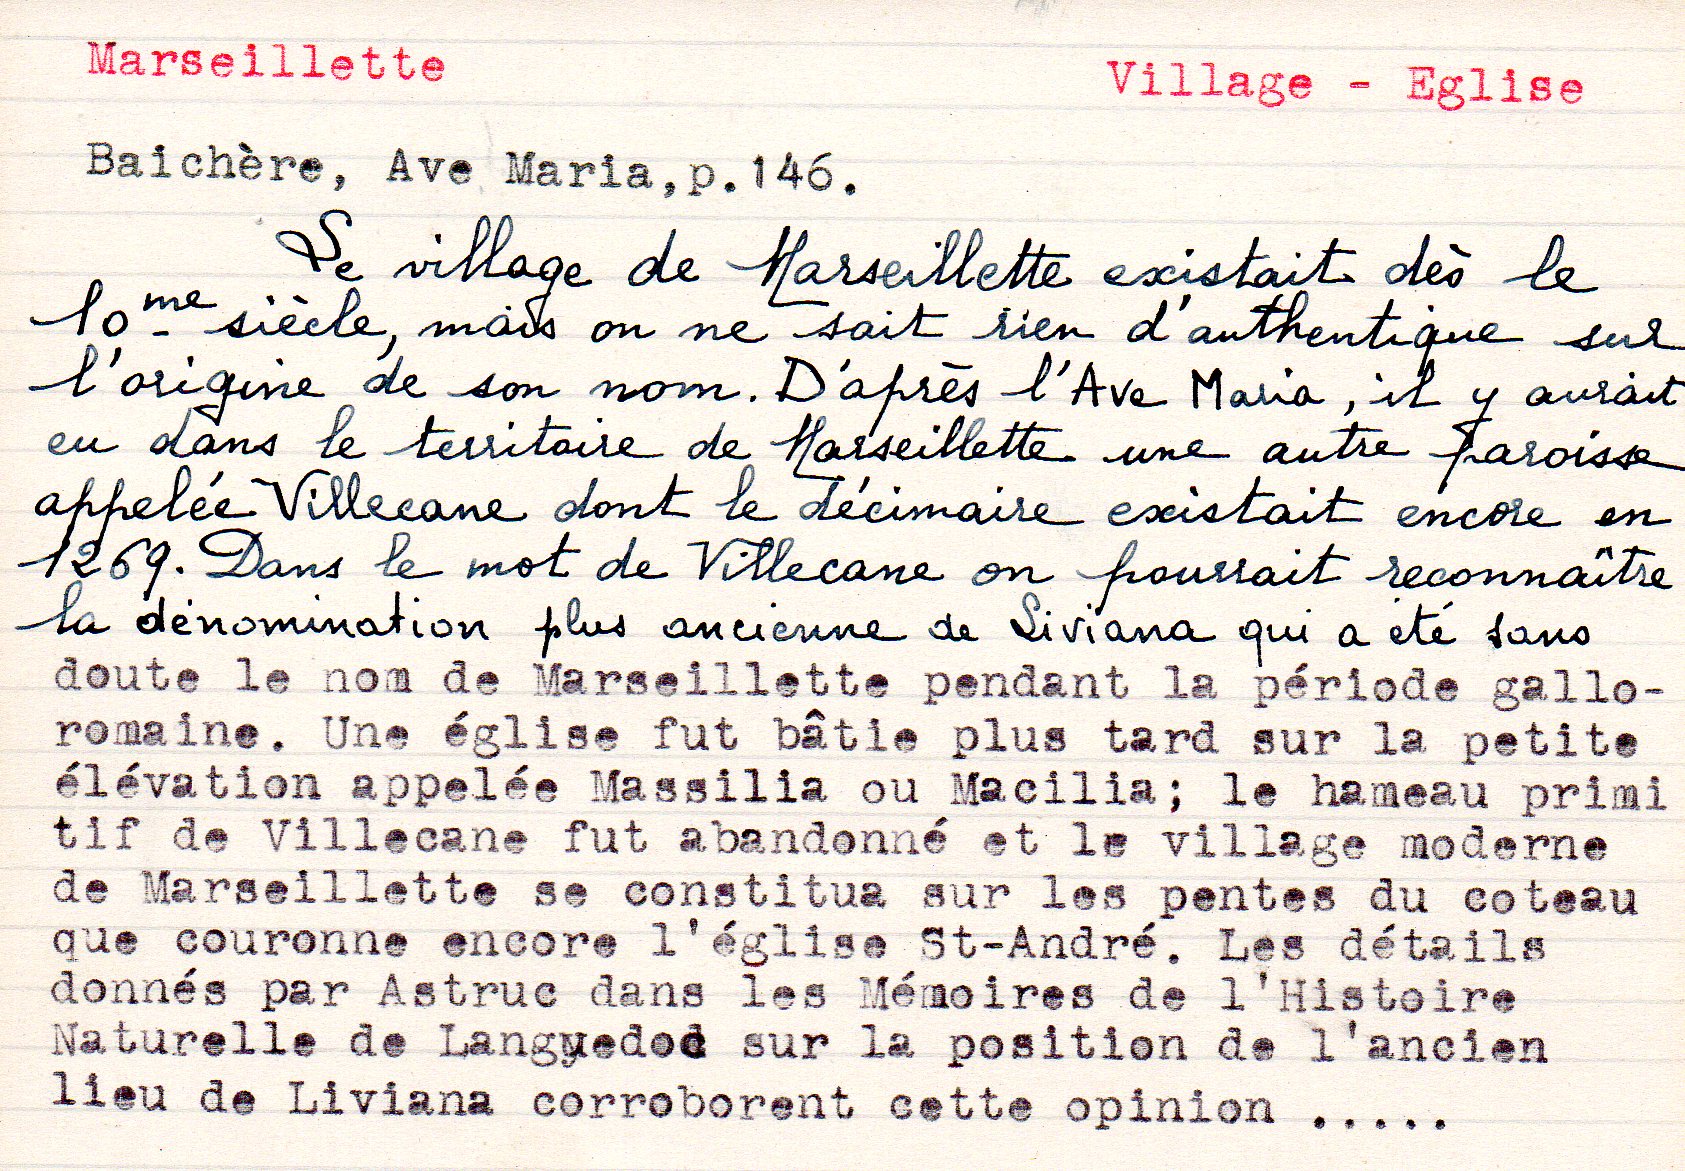 Marseillette
Village - Eglise
Baichère, Ave Maria,p.146.
Le village de Marseillette existait dès le
10me siècle, mais on ne sait rien d'authentique sur
l'origine de son nom. D'après l'Ave Maria, il y aurait
eu dans le territoire de Marseillette une autre paroisse
appelée Villecane dont le décimaire existait encore en
1269. Dans le mot de Villecane on pourrait reconnaître
la dénomination plus ancienne de Liviana qui a été sans
doute le nom de Marseillette pendant la période gallo-
romaine. Une église fut bâtie plus tard sur la petite
élévation appelée Massilia ou Macilia; le hameau primi
tif de Villecane fut abandonné et le village moderne
de Marseillette se constitua sur les pentes du coteau
que couronne encore l'église St-André. Les détails
donnés par Astruc dans les Mémoires de l'Histoire
Naturelle de Languedoc sur la position de l'ancien
lieu de Liviana corroborent cette opinion .....